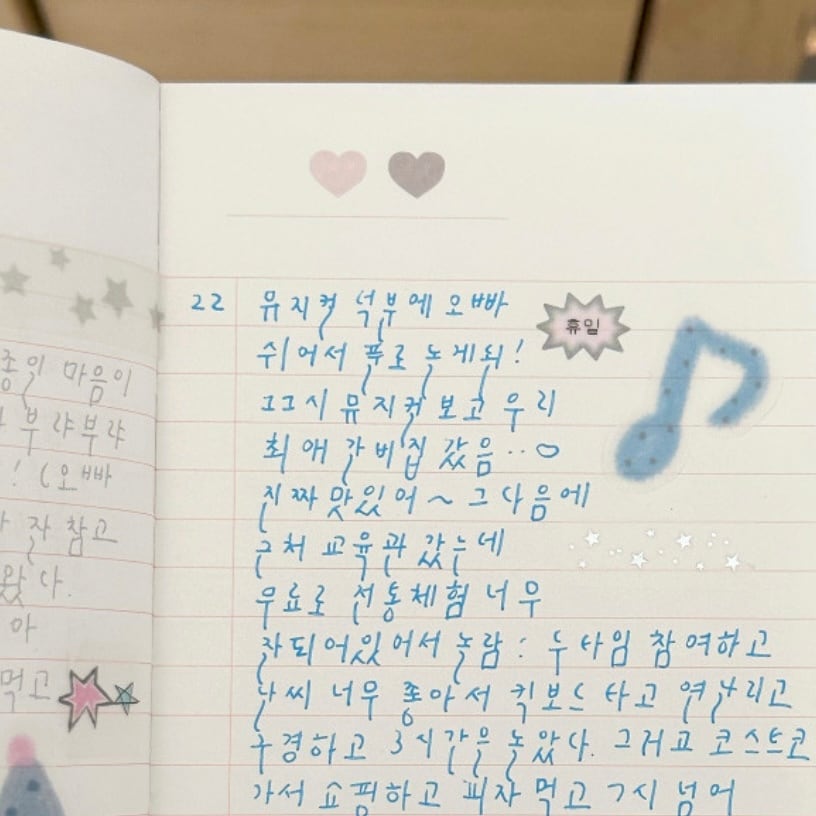 종일 마음이
부랴부랴
! (오빠
잘 참고
왔다.
아
먹고
22 뮤지컬 덕분에 오빠
쉬어서 푹로 놀게되!
휴일
11시 뮤지컬 보고 우리
최애 갈비집 갔음..♡
진짜 맛있어~ 그다음에
근처 교육관 갔는데
무료로 전통체험 너무
잘되어있어서 놀람: 두타임 참여하고
날씨 너무 좋아서 킥보드 타고 연날리고
구경하고 3시간은 놀았다. 그러고 코스트코
가서 쇼핑하고 피자 먹고 7시 넘어